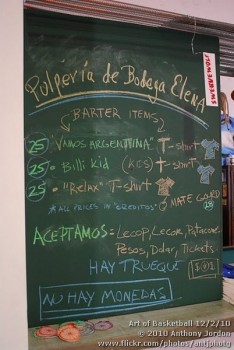 SWERVEWOLF
Pulpería de Bodega Elena
BARTER ITEMS
25 - "VAMOS ARGENTINA" T-shirt
25 - Billi Kid (KCS) T-shirt
25 - "Relax" T-shirt
MATE GOURD
* ALL PRICES IN "CREDITOS"
ACEPTAMOS: Lecop, Lecor, Patacone
Pesos, Dolar, Tickets
HAY TRUEQUE
NO HAY MONEDAS
Art of Basketball 12/2/10
© 2010 Anthony Jordon
www.flickr.com/photos/antjphotg